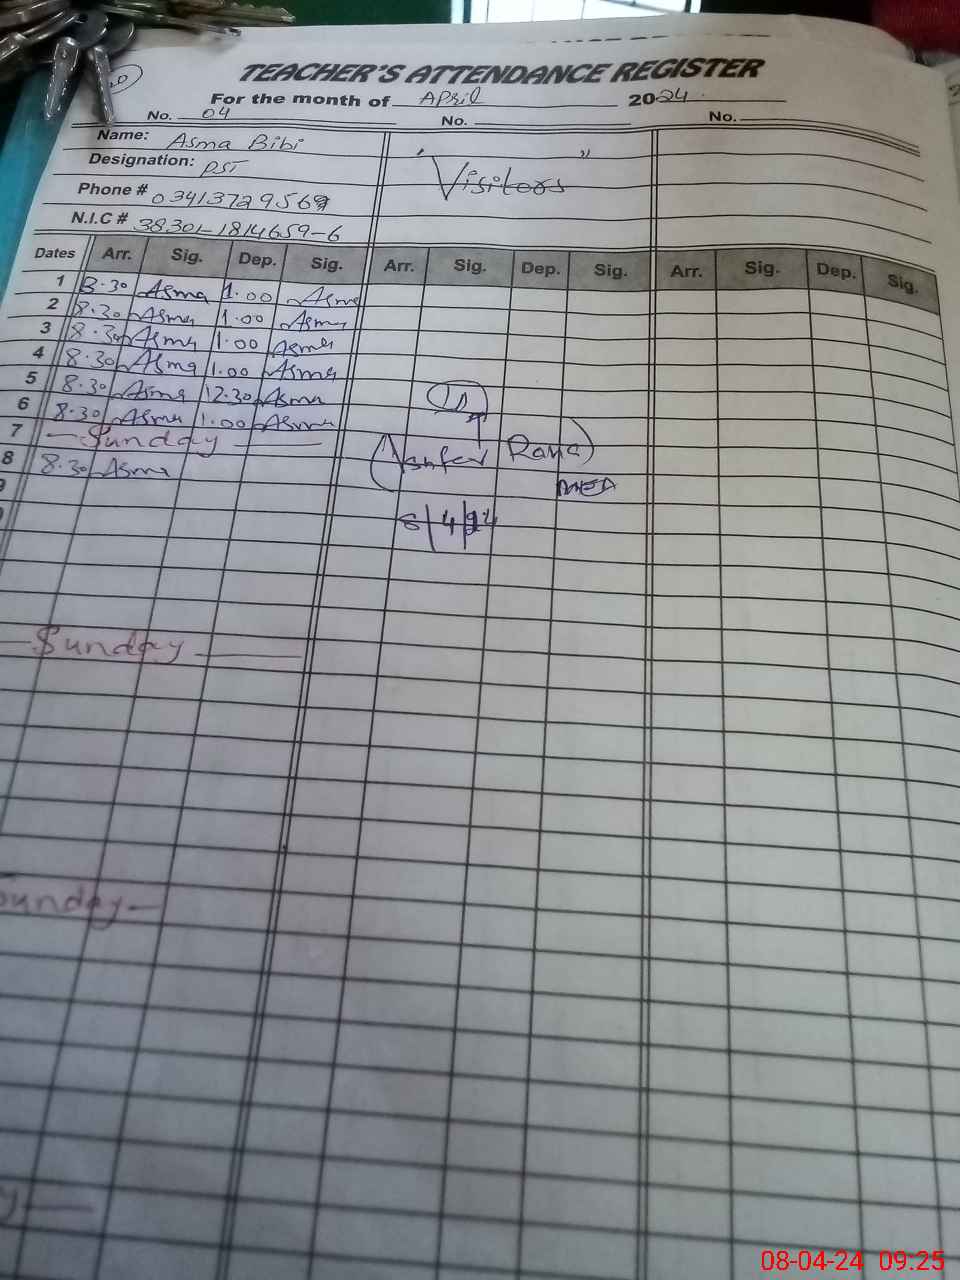 TEACHER'S ATTENDANCE REGISTER
For the month of April 2024.
No. 04 No. No.
Name: Asma Bibi
Designation: PST
"Visitors"
Phone # 0341372956
N.I.C # 38301-1814659-6
Dates Arr. Sig. Dep. Sig. Arr. Sig. Dep. Sig. Arr. Sig. Dep. Sig.
1 8.30 Asma 1.00 Asma
2 8.30 Asma 1.00 Asma
3 8.30 Asma 1.00 Asma
4 8.30 Asma 1.00 Asma
5 8.30 Asma 12.30 Asma
6 8.30 Asma 1.00 Asma
7 Sunday
8 8.30 Asma
Rana)
MEA
8/4/24
Sunday
Sunday
08-04-24 09:25